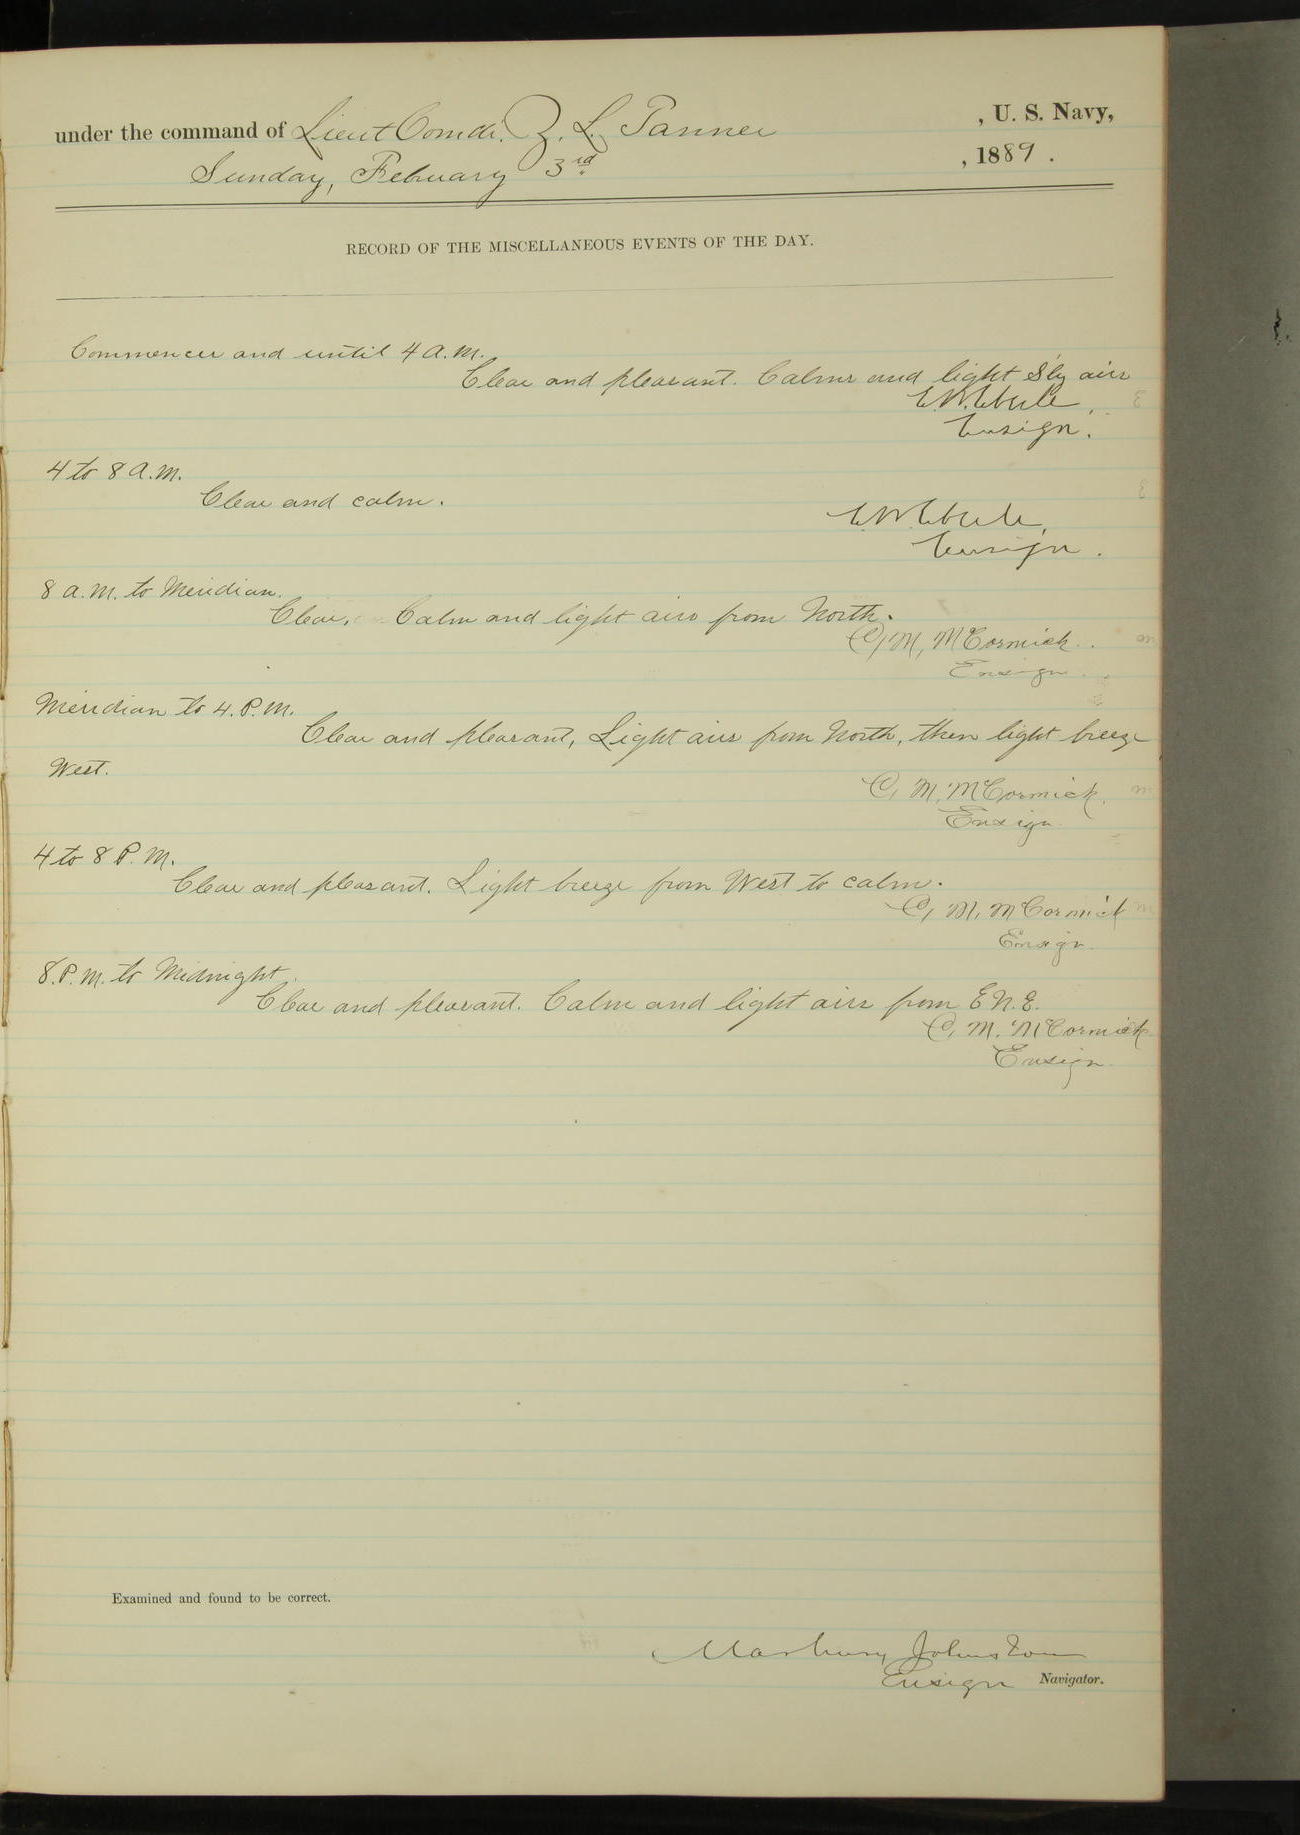 under the command of Lieut Comdr. Z. L. Tanner , U. S. Navy,
Sunday, February 3rd , 1889.
RECORD OF THE MISCELLANEOUS EVENTS OF THE DAY.
Commences and until 4 A.M.
Clear and pleasant. Calms and light S'ly airs
E.W. Eberle,
Ensign.
4 to 8 A.M.
Clear and calm.
E.W. Eberle,
Ensign.
8 a.m. to Meridian.
Clear. Calm and light airs from North.
C, M, McCormick.
Ensign.
Meridian to 4. P.M.
Clear and pleasant, Light airs from North, then light breeze
West.
C, M, McCormick.
Ensign
4 to 8 P.M.
Clear and pleasant. Light breeze from West to calm.
C, M, McCormick
Ensign.
8. P.M. to Midnight.
Clear and pleasant. Calm and light airs from E N.E.
C, M. McCormick
Ensign.
Examined and found to be correct.
Marbury Johnston
Ensign Navigator.